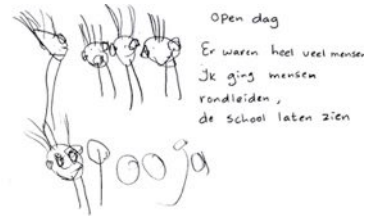 open dag
Er waren heel veel mensen
Ik ging mensen
rondleiden,
de school laten zien
Pooja